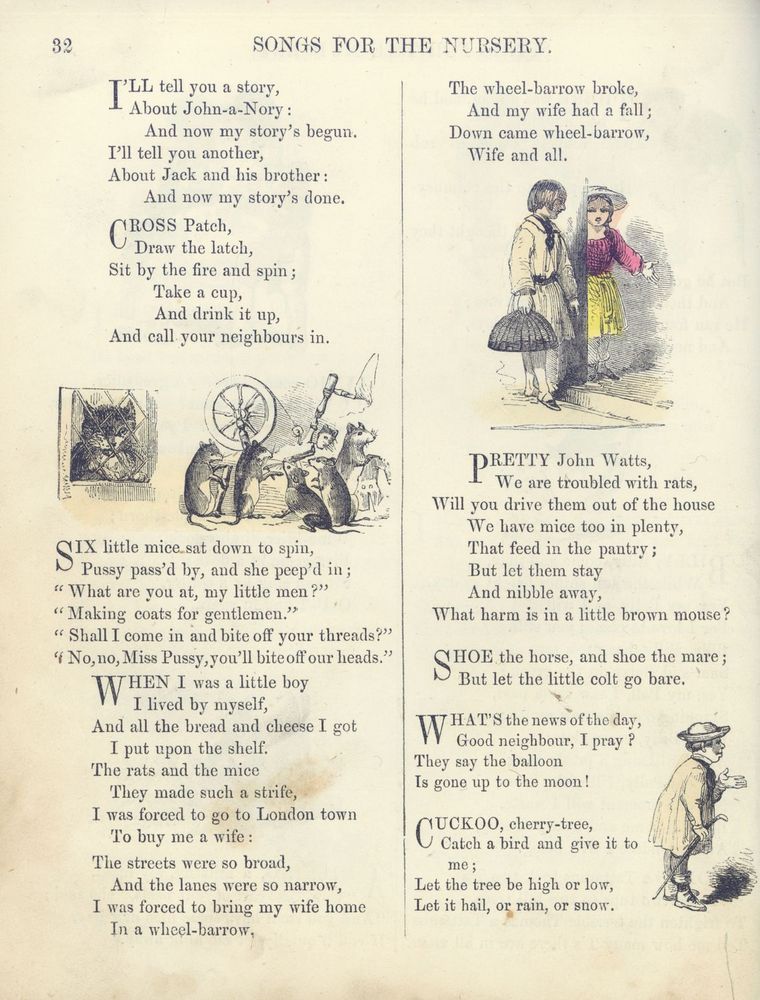 32
SONGS FOR THE NURSERY.
I'LL tell you a story,
About John-a-Nory:
And now my story's begun.
I'll tell you another,
About Jack and his brother:
And now my story's done.
CROSS Patch,
Draw the latch,
Sit by the fire and spin;
Take a cup,
And drink it up,
And call your neighbours in.
SIX little mice sat down to spin,
Pussy pass'd by, and she peep'd in;
"What are you at, my little men?"
"Making coats for gentlemen."
"Shall I come in and bite off your threads?"
"No, no, Miss Pussy, you'll bite off our heads."
WHEN I was a little boy
I lived by myself,
And all the bread and cheese I got
I put upon the shelf.
The rats and the mice
They made such a strife,
I was forced to go to London town
To buy me a wife:
The streets were so broad,
And the lanes were so narrow,
I was forced to bring my wife home
In a wheel-barrow.
The wheel-barrow broke,
And my wife had a fall;
Down came wheel-barrow,
Wife and all.
PRETTY John Watts,
We are troubled with rats,
Will you drive them out of the house
We have mice too in plenty,
That feed in the pantry;
But let them stay
And nibble away,
What harm is in a little brown mouse?
SHOE the horse, and shoe the mare;
But let the little colt go bare.
WHAT'S the news of the day,
Good neighbour, I pray?
They say the balloon
Is gone up to the moon!
CUCKOO, cherry-tree,
Catch a bird and give it to
me;
Let the tree be high or low,
Let it hail, or rain, or snow.